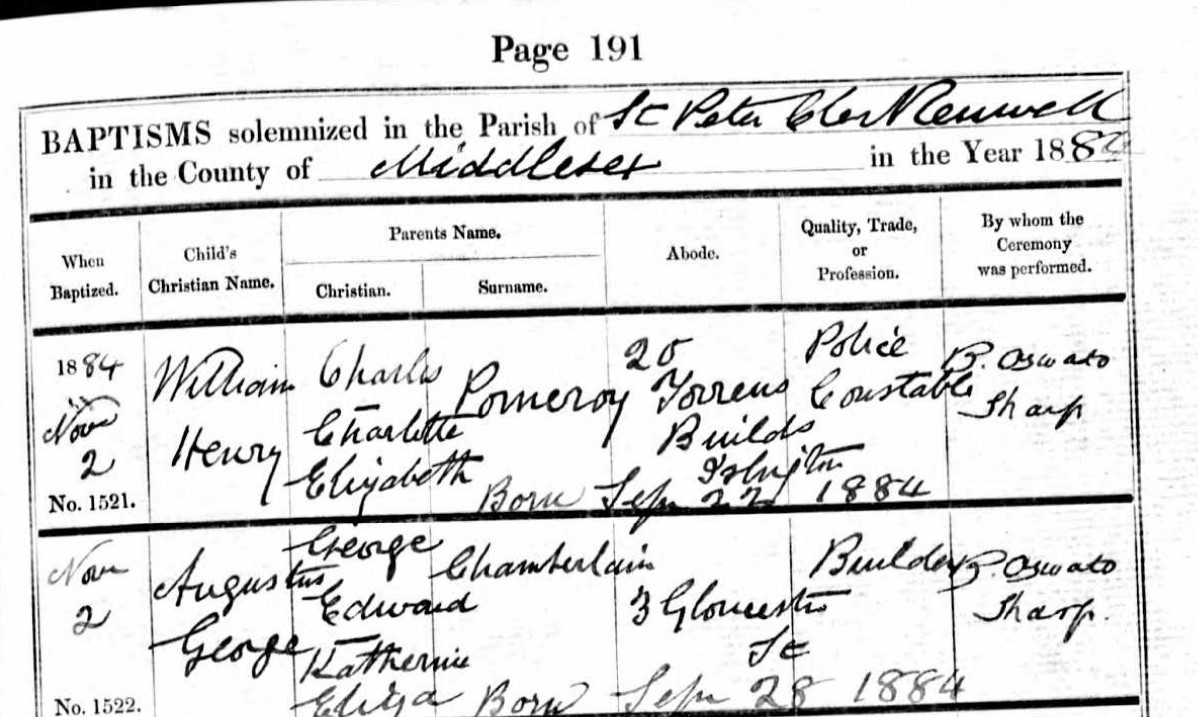 Page 191
BAPTISMS solemnized in the Parish of St Peter Clerkenwell
in the County of Middlesex in the Year 1884
When Baptized.
Child's Christian Name.
Parents Name.
Christian.
Surname.
Abode.
Quality, Trade, or Profession.
By whom the Ceremony was performed.
1884
Nov
2
No. 1521.
William
Henry
Charles
Charlotte
Elizabeth
Pomeroy
20
Torrens
Builds
Islington
Police
Constable
B. Oswald
Sharp
Born Sep 22 1884
Nov
2
No. 1522.
Augustus
George
George
Edward
Katherine
Eliza
Chamberlain
3 Gloucester
St
Builder
B. Oswald
Sharp.
Born Sep 28 1884